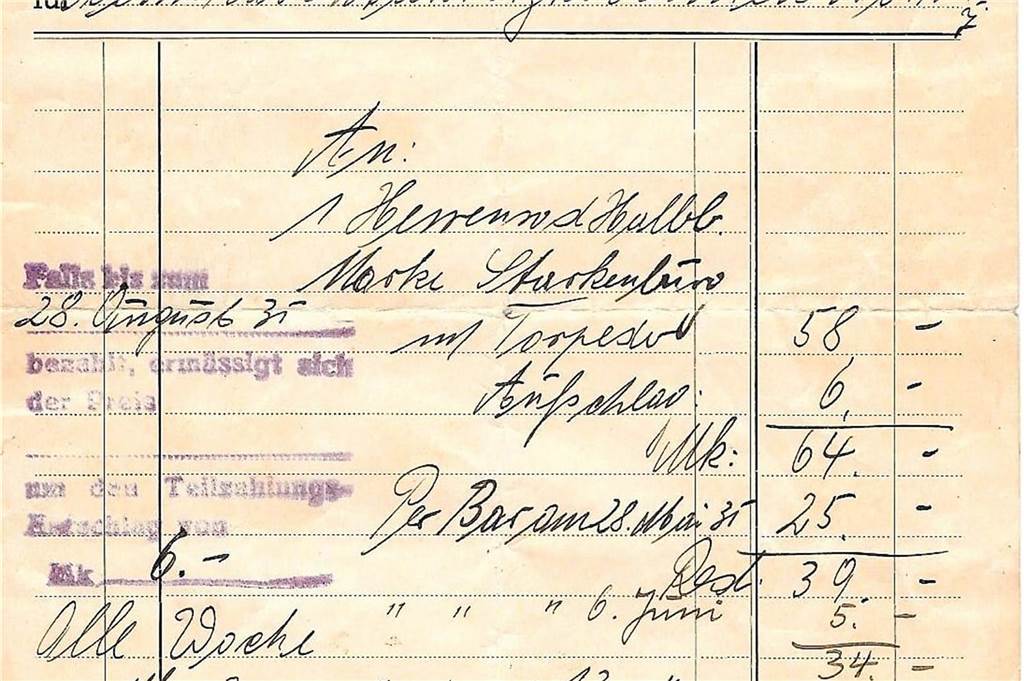 für
7
An:
1 Herrenrad Halbb.
Marke Starkenburg
mit Torpedo 58 –
Aufschlag: 6, –
Mk: 64. –
Per Bar am 28. Mai 31 25. –
Rest. 39. –
" " " 6. Juni 5. –
34. –
Falls bis zum
28. August 31
bezahlt, ermässigt sich
der Preis
um den Teilzahlungs-
Aufschlag von
Mk 6.–
Alle Woche